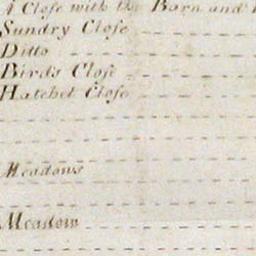 A Close with the Barn and
Sundry Close
Ditto
Bird's Close
Hatchet Close
Meadows
Meadow